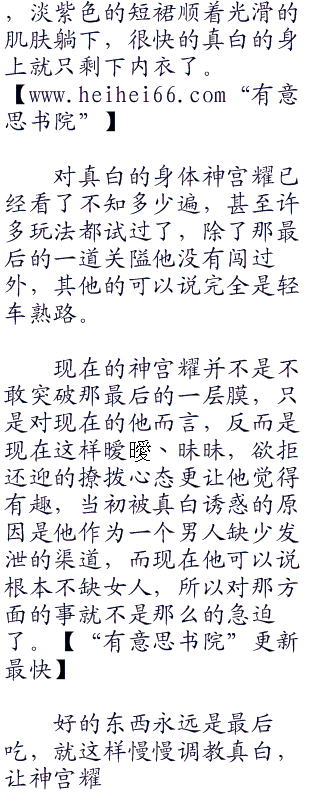 ，淡紫色的短裙顺着光滑的
肌肤躺下，很快的真白的身
上就只剩下内衣了。
【www.heihei66.com“有意
思书院”】
对真白的身体神宫耀已
经看了不知多少遍，甚至许
多玩法都试过了，除了那最
后的一道关隘他没有闯过
外，其他的可以说完全是轻
车熟路。
现在的神宫耀并不是不
敢突破那最后的一层膜，只
是对现在的他而言，反而是
现在这样暧曖、昧昧，欲拒
还迎的撩拨心态更让他觉得
有趣，当初被真白诱惑的原
因是他作为一个男人缺少发
泄的渠道，而现在他可以说
根本不缺女人，所以对那方
面的事就不是那么的急迫
了。【“有意思书院”更新
最快】
好的东西永远是最后
吃，就这样慢慢调教真白，
让神宫耀